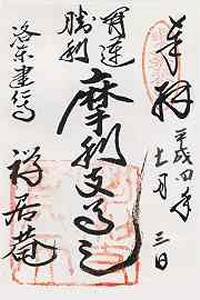 奉拝
平成四年
十一月三日
開運
勝利
摩利支尊天
洛東建仁寺
禅居菴